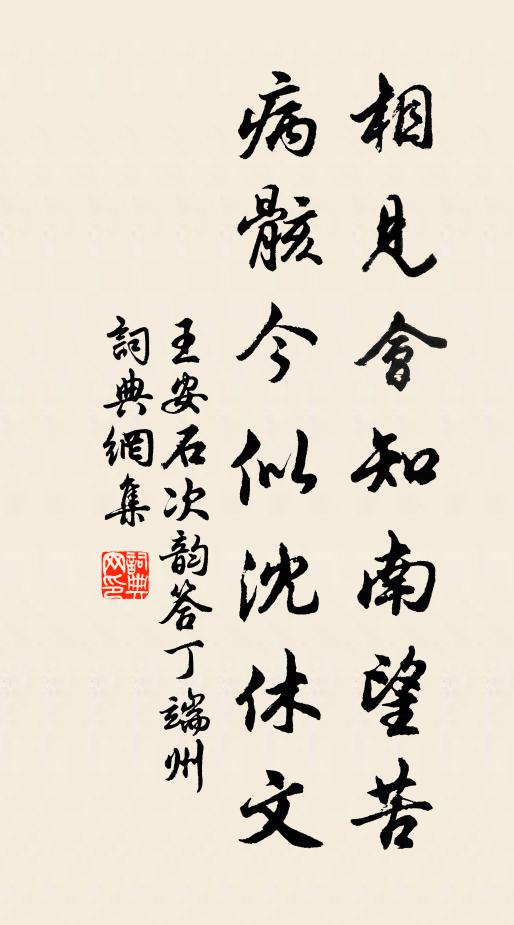 相見會知南望苦
病骸今似沈休文
王安石次韵答丁端州
詞典網集
詞典網印